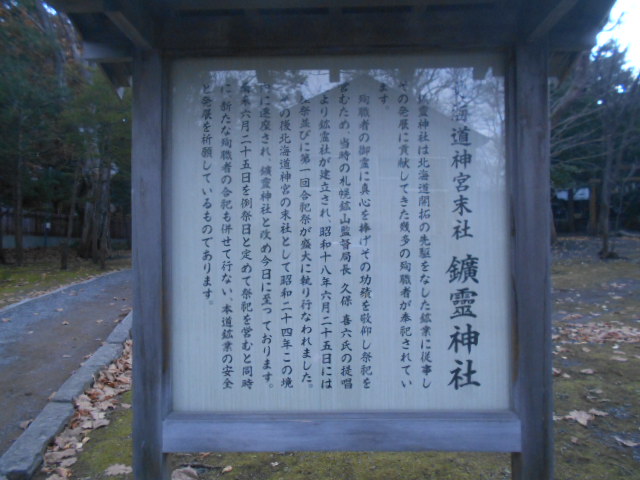 海道神宮末社 鑛霊神社
霊神社は北海道開拓の先駆をなした鉱業に従事し
その発展に貢献してきた幾多の殉職者が奉祀されてい
ます。
殉職者の御霊に真心を捧げその功績を敬仰し祭祀を
営むため、当時の札幌鉱山監督局長 久保 喜六氏の提唱
より鉱霊社が建立され、昭和十八年六月二十五日には
祭並びに第一回合祀祭が盛大に執り行なわれました。
の後北海道神宮の末社として昭和二十四年この境
に遷座され、鑛霊神社と改め今日に至っております。
年六月二十五日を例祭日と定めて祭祀を営むと同時
に、新たな殉職者の合祀も併せて行ない、本道鉱業の安全
と発展を祈願しているものであります。